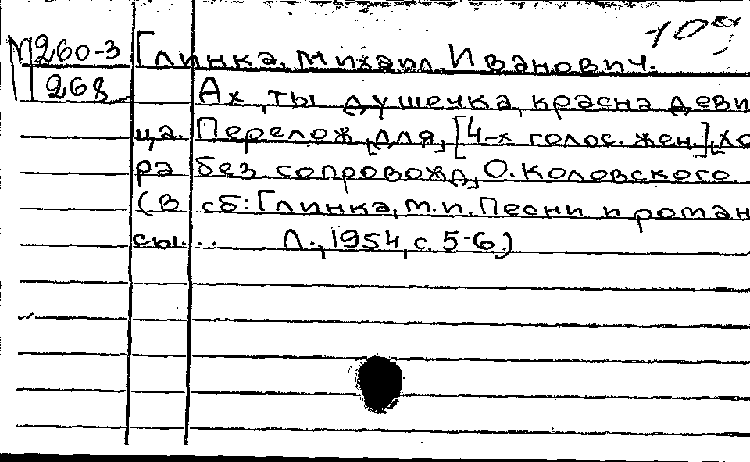 109
М260-3 Глинка, Михаил Иванович.
268 Ах, ты душечка, красна деви
ца. Перелож. для [4-х голос. жен.] хо
ра без сопровожд. О. Коловского
(В сб: Глинка, М.И. Песни и роман
сы... Л., 1954, с. 5-6)